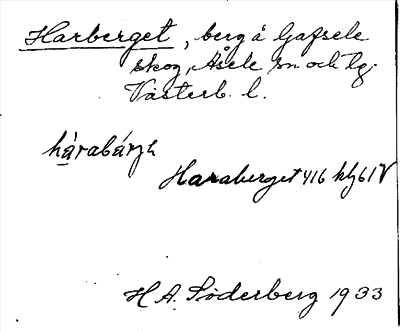 Harberget, berg å Gafsele
skog, Åsele sn och lg.
Västerb. l.
Haraberget 416 61 V
H A. Söderberg 1933